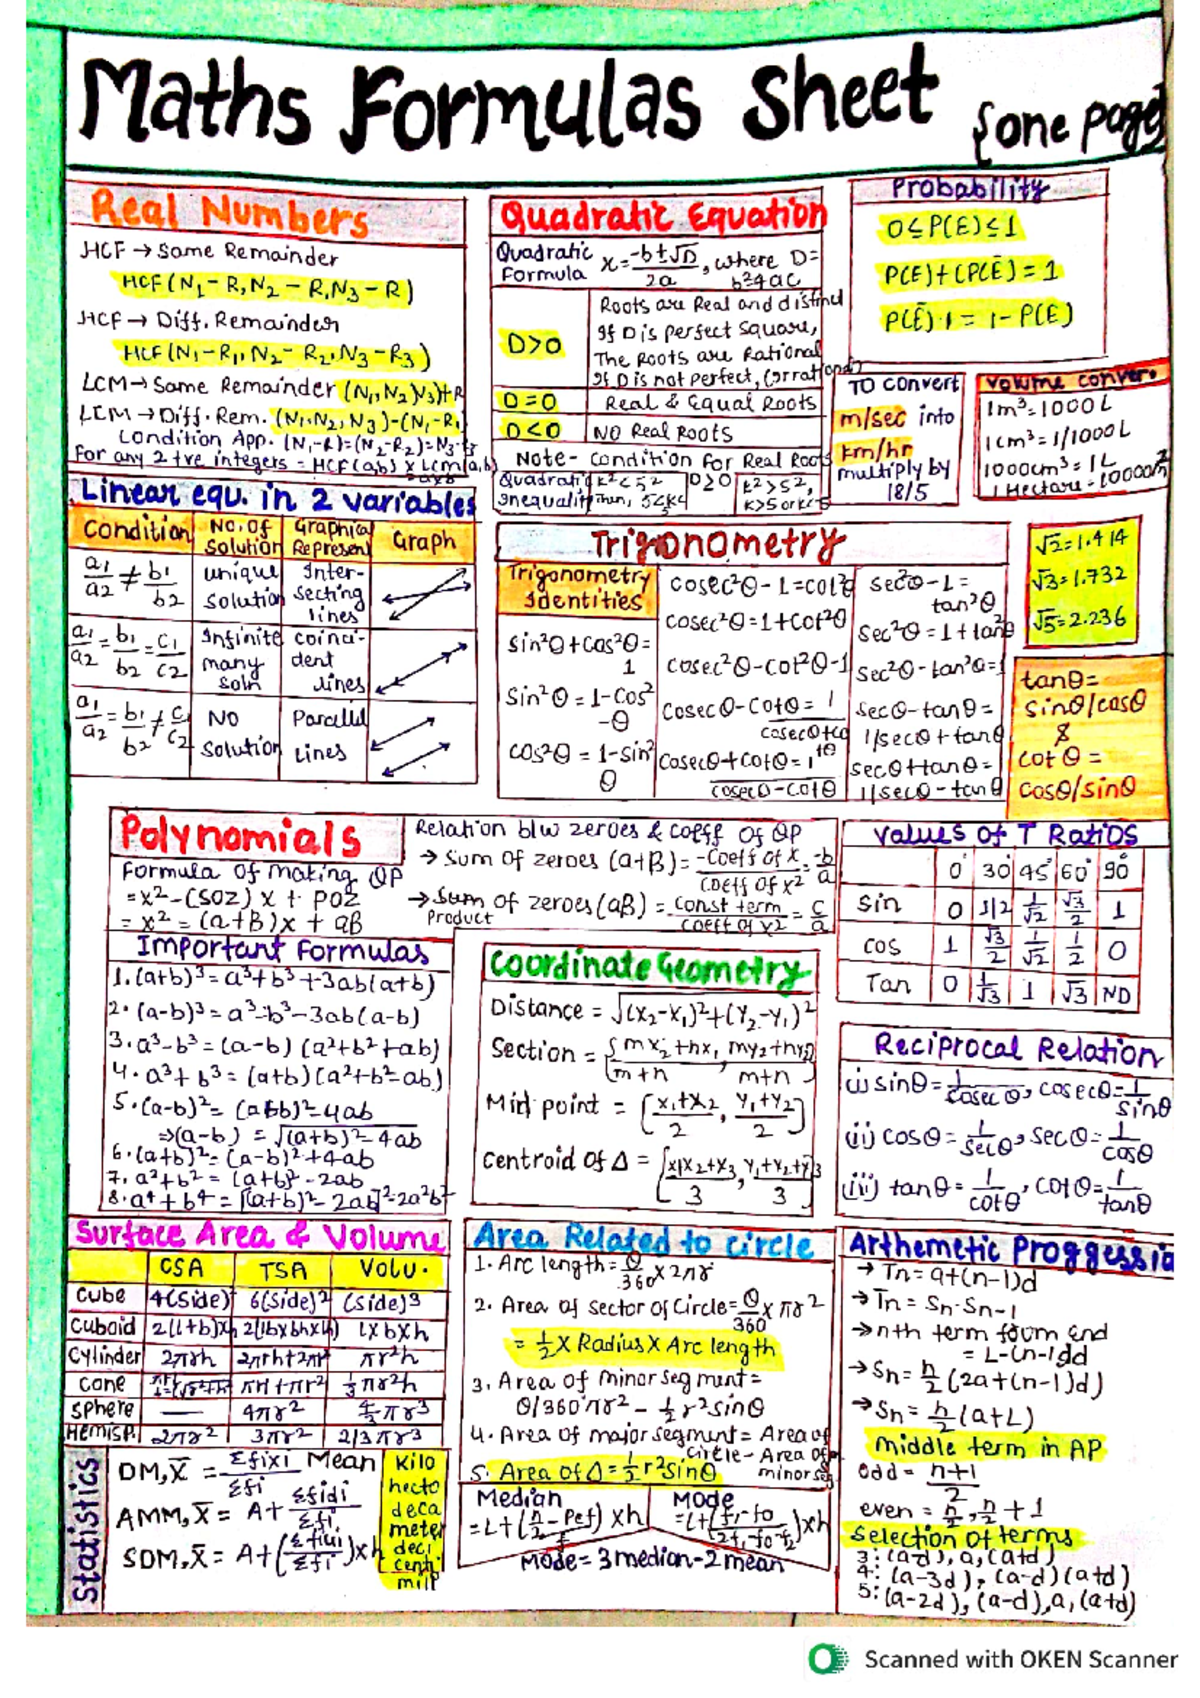 Maths Formulas Sheet {one page}
Real Numbers
HCF → Same Remainder
HCF (N₁ - R, N₂ - R, N₃ - R)
HCF → Diff. Remainder
HCF (N₁-R₁, N₂- R₂, N₃ - R₃)
LCM → Same Remainder (N₁, N₂, N₃)+R
LCM → Diff. Rem. (N₁, N₂, N₃)-(N₁-R₁
Condition App. (N₁-R)=(N₂-R₂)=N₃-
For any 2 +ve integers = HCF(a,b) x Lcm(a,b)
Quadratic Equation
Quadratic Formula x = -b±√D / 2a, where D = b²4ac
D>0
Roots are Real and distinct
If D is perfect square,
The Roots are Rational
If D is not perfect, (irrational)
D=0 Real & Equal Roots
D<0 NO Real Roots
Note- Condition for Real Roots D≥0
Quadratic Inequality
k²<5² Then,
k²>5²,
Probability
0≤P(E)≤1
P(E)+(P(Ē)=1
P(Ē)·1 = 1-P(E)
TO convert
m/sec into
km/hr
multiply by
18/5
Volume conver.
1m³=1000L
1cm³=1/1000L
1000cm³=1L
1 Hectare=10000m²
Linear equ. in 2 variables
Condition No. of Solution Graphical Represent Graph
a₁/a₂ ≠ b₁/b₂ unique solution Inter-secting lines
a₁/a₂ = b₁/b₂ = c₁/c₂ Infinite many soln coinci-dent lines
a₁/a₂ = b₁/b₂ ≠ c₁/c₂ NO solution Parallel Lines
Trigonometry
Trigonometry Identities
sin²θ+cos²θ=1
sin²θ=1-cos²-θ
cos²θ=1-sin²θ
cosec²θ-1=cot²θ
cosec²θ=1+cot²θ
cosec²θ-cot²θ-1
cosecθ-cotθ= 1/cosecθ+cotθ
cosecθ+cotθ=1/cosecθ-cotθ
sec²θ-1=tan²θ
sec²θ=1+tan²θ
sec²θ-tan²θ=1
secθ-tanθ=1/secθ+tanθ
secθ+tanθ=1/secθ-tanθ
√2=1.414
√3=1.732
√5=2.236
tanθ=
sinθ/cosθ
&
cotθ=
cosθ/sinθ
Polynomials
Formula of making QP
=x²-(soz)x + poz
=x²=(α+β)x + αβ
Relation b/w zeroes & coeff of QP
→ Sum of zeroes (α+β) = -Coeff of x / Coeff of x² = -b/a
→ Sum Product of zeroes (αβ) = const term / coeff of x² = c/a
Values of T Ratios
0° 30° 45° 60° 90°
sin 0 1/2 1/√2 √3/2 1
cos 1 √3/2 1/√2 1/2 0
Tan 0 1/√3 1 √3 ND
Important Formulas
1. (a+b)³=a³+b³+3ab(a+b)
2. (a-b)³=a³-b³-3ab(a-b)
3. a³-b³=(a-b)(a²+b²+ab)
4. a³+b³=(a+b)(a²+b²-ab)
5. (a-b)²=(a+b)²-4ab
⇒(a-b) = √(a+b)²-4ab
6. (a+b)²=(a-b)²+4ab
7. a²+b²=(a+b)²-2ab
8. a⁴+b⁴=[(a+b)²-2ab]²-2a²b²
Coordinate Geometry
Distance = √(x₂-x₁)²+(Y₂-Y₁)²
Section = {mx₂+nx₁ / m+n, my₂+ny₁ / m+n}
Mid point = [x₁+x₂ / 2, Y₁+Y₂ / 2]
Centroid of Δ = [x₁x₂+x₃ / 3, Y₁+Y₂+Y₃ / 3]
Reciprocal Relation
(i) sinθ=1/cosecθ, cosecθ=1/sinθ
(ii) cosθ=1/secθ, secθ=1/cosθ
(iii) tanθ=1/cotθ, cotθ=1/tanθ
Surface Area & Volume
CSA TSA Volu.
cube 4(side)² 6(side)² (side)³
cuboid 2(l+b)xh 2(lbxbhxh) lxbxh
cylinder 2πrh 2πrh+2πr² πr²h
cone πrl+πr² 1/3πr²h
sphere — 4πr² 4/3πr³
Hemisp. 2πr² 3πr² 2/3πr³
Area Related to Circle
1. Arc length=θ/360 x 2πr
2. Area of sector of Circle=θ/360 x πr²
= ½ x Radius x Arc length
3. Area of minor segment=
θ/360πr² - ½r²sinθ
4. Area of major segment = Area of circle - Area of minor seg
5. Area of Δ=½r²sinθ
Arthemetic Proggessio
→ Tn=a+(n-1)d
→ Tn = Sn-Sn-1
→ nth term foum end
= L-(n-1)d
→ Sn=n/2(2a+(n-1)d)
→ Sn=n/2(a+L)
middle term in AP
odd = n+1/2
even = n/2, n/2+1
Selection of terms
3: (a-d), a, (a+d)
4: (a-3d), (a-d)(a+d)
5: (a-2d), (a-d), a, (a+d)
Statistics
DM, x̄ = Σfixi / Σfi Mean
AMM, x̄ = A+ Σfidi / Σfi
SDM, x̄ = A+(Σfiui / Σfi)xh
Kilo
hecto
deca
meter
deci
centi
milli
Median
=L+(n/2 - Pcf / f)xh
Mode
=L+(f₁-f₀ / 2f₁-f₀-f₂)xh
Mode=3median-2mean
Scanned with OKEN Scanner